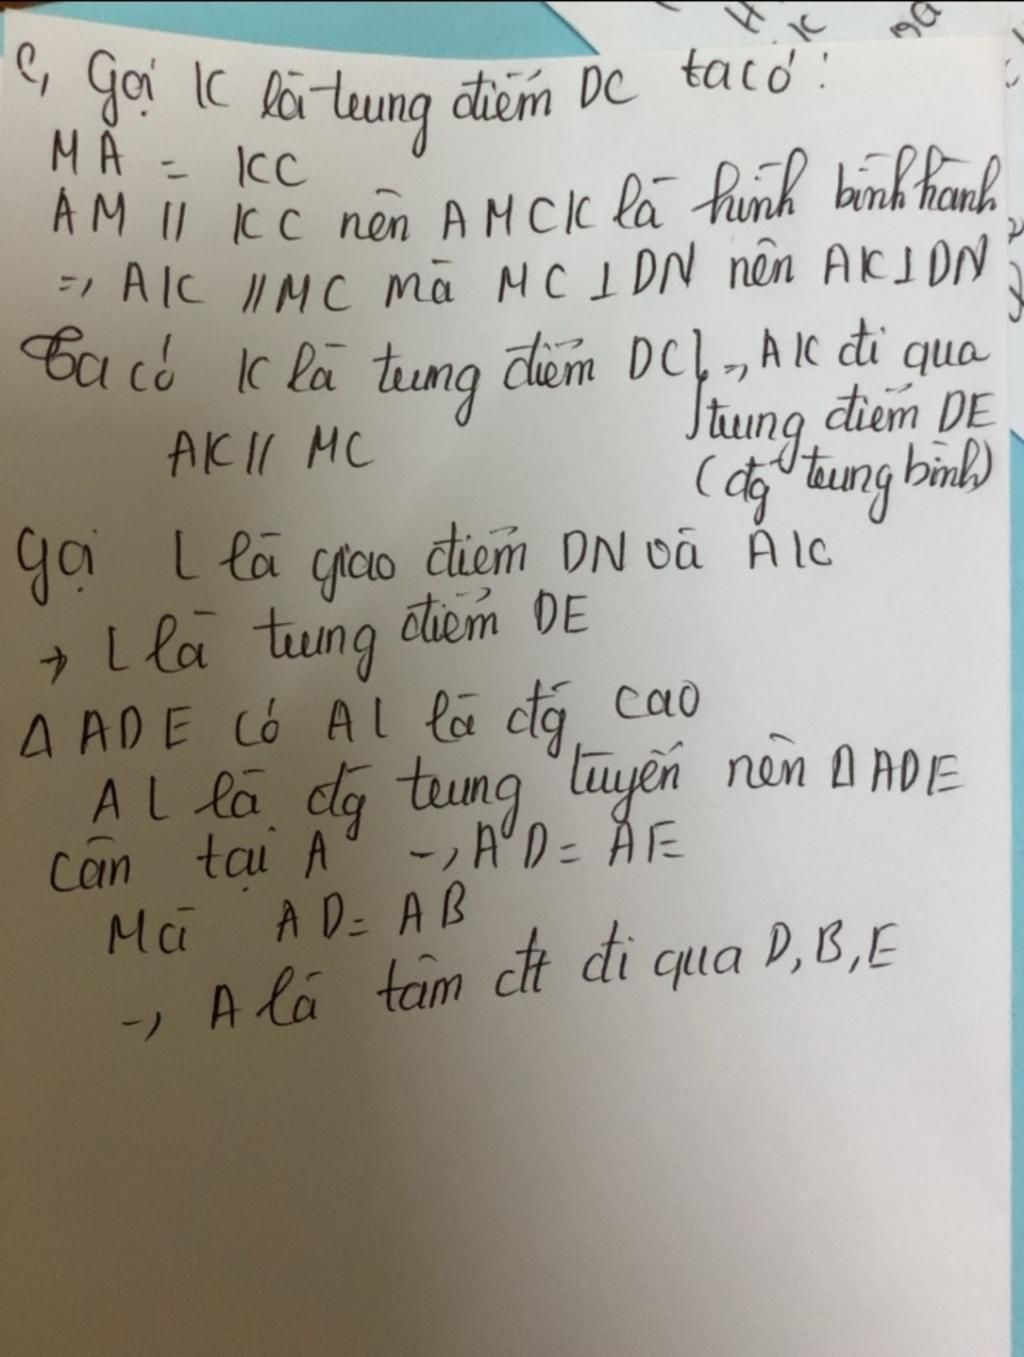 c, Gọi K là trung điểm DC ta có:
MA = KC
AM // KC nên AMCK là hình bình hành
=> AK // MC mà MC ⊥ DN nên AK ⊥ DN
Ta có K là trung điểm DC } => AK đi qua
trung điểm DE
AK // MC
(đg trung bình)
Gọi L là giao điểm DN và AK
→ L là trung điểm DE
Δ ADE có AL là đg cao
AL là đg trung tuyến nên Δ ADE
cân tại A -> AD = AE
Mà AD = AB
-> A là tâm đt đi qua D, B, E